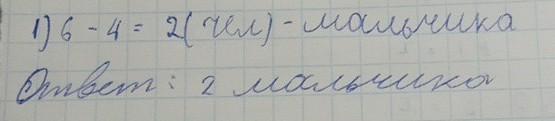 1) 6 - 4 = 2 (чел) - мальчика
Ответ: 2 мальчика